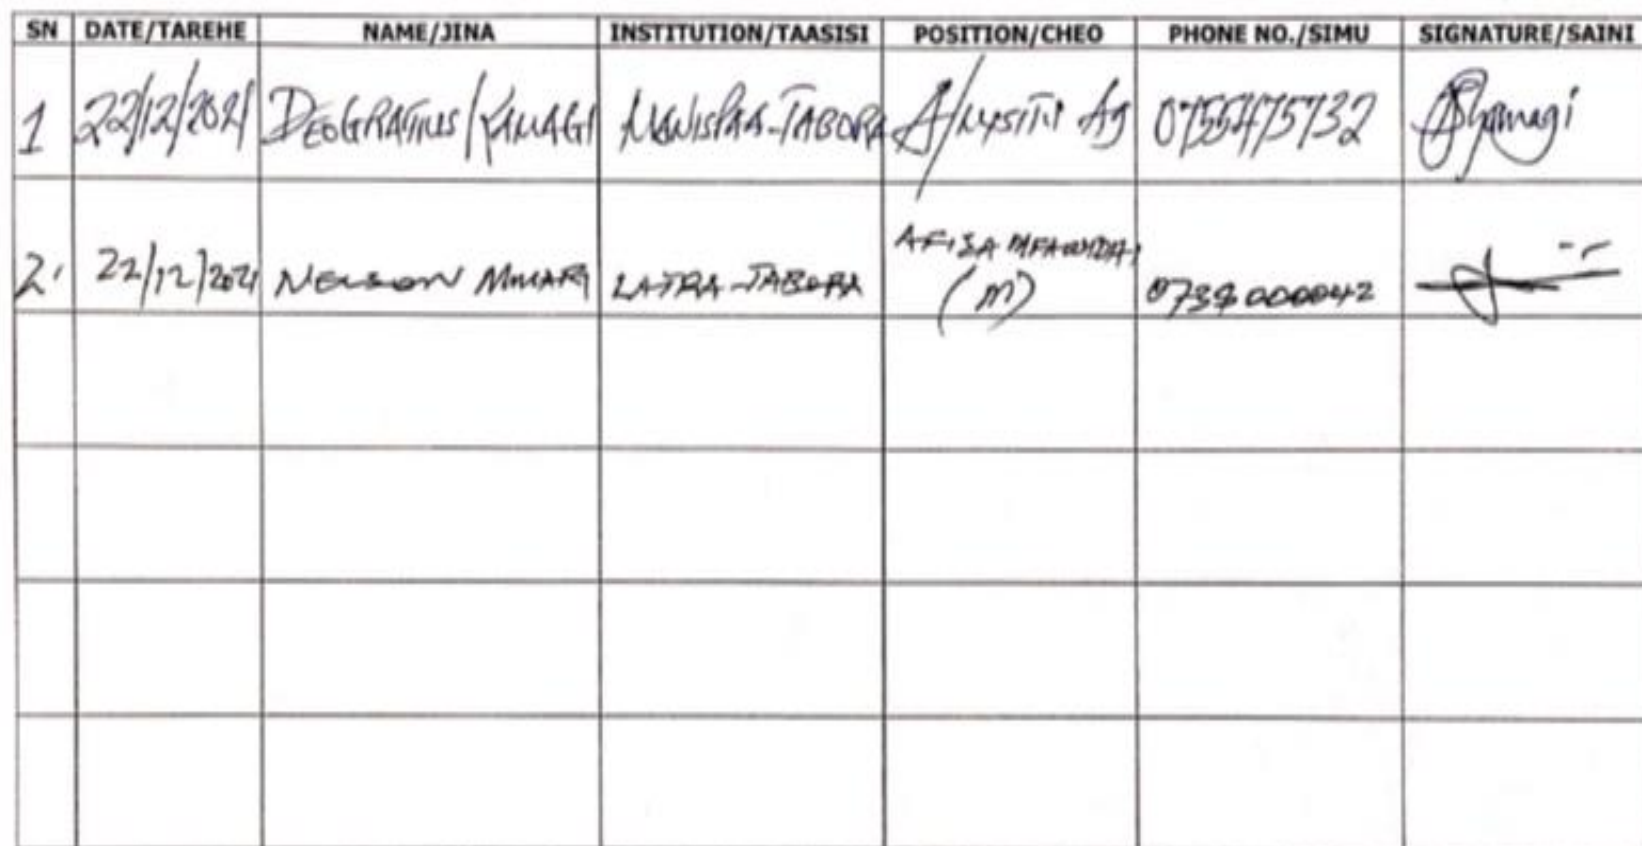 SN DATE/TAREHE NAME/JINA INSTITUTION/TAASISI POSITION/CHEO PHONE NO./SIMU SIGNATURE/SAINI
1 22/12/2021 DEOGRATIUS MANISPAA-TABORA 0755475732
2. 22/12/2021 NELSON LATRA-TABORA AFISA MFAWIDHI
(M) 0738000042